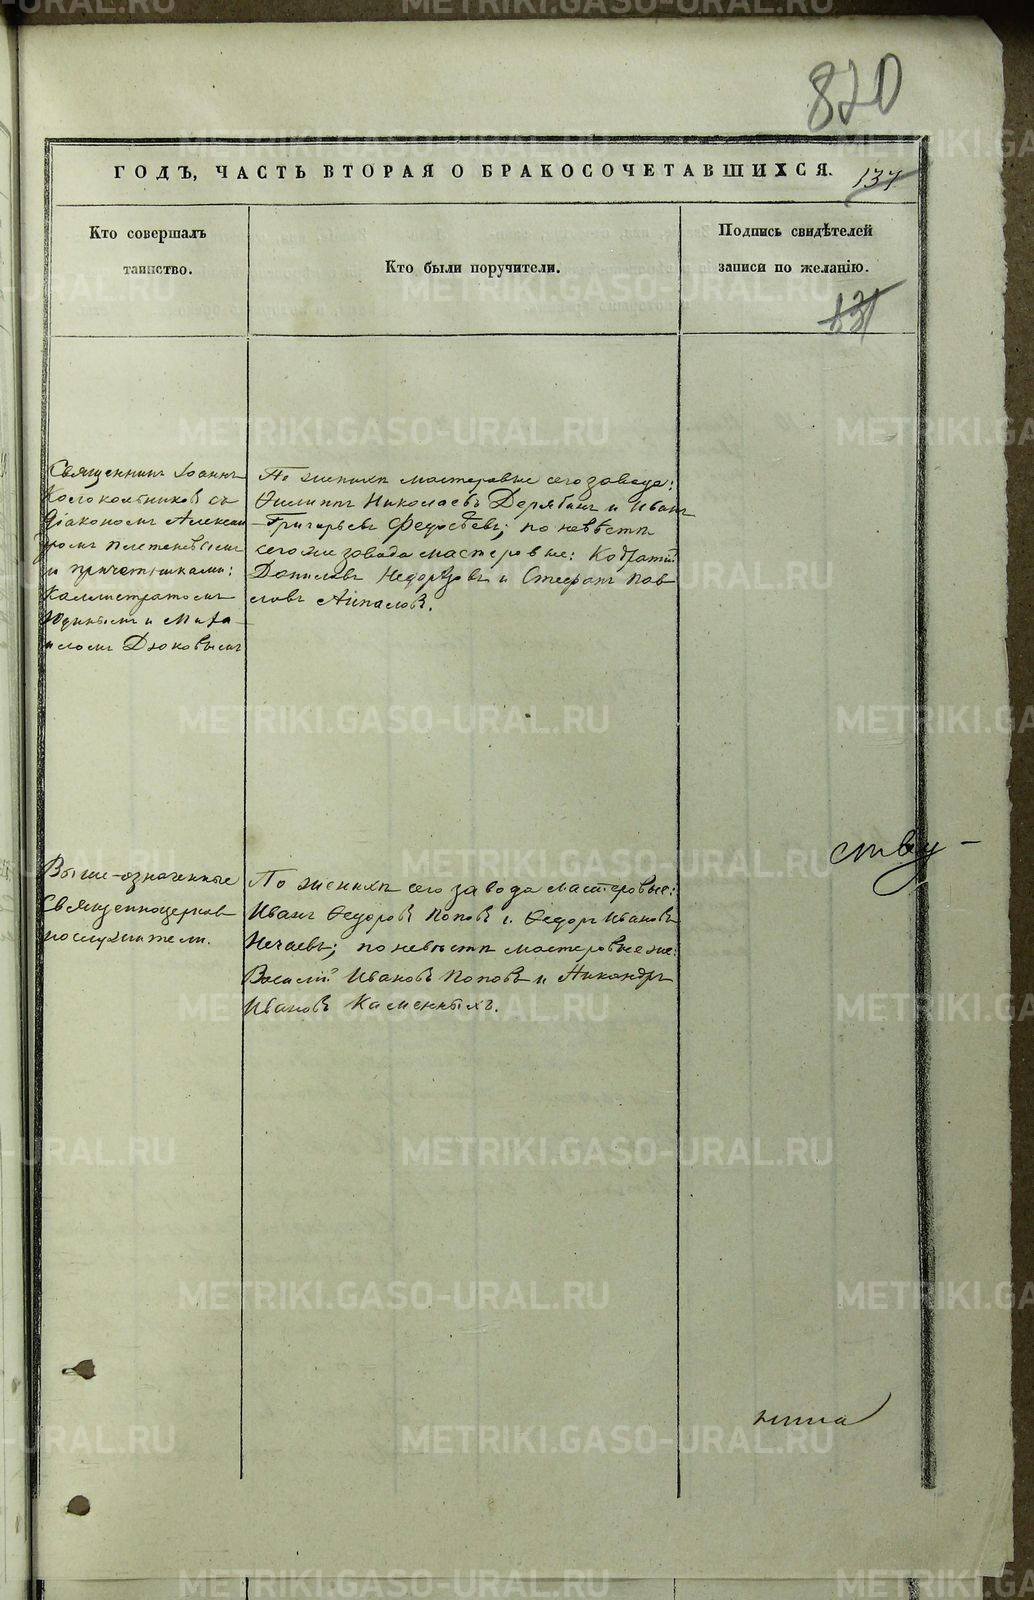 820
ГОДЪ, ЧАСТЬ ВТОРАЯ О БРАКОСОЧЕТАВШИХСЯ.
137
Кто совершалъ
таинство.
Кто были поручители.
Подпись свидѣтелей
записи по желанію.
131
Священникъ Іоаннъ
Колокольниковъ съ
Діакономъ Алексан
дромъ
и причетниками:
Каллистратомъ
Юдинымъ и Миха-
иломъ Дюковымъ
По женихѣ мастеровые сего завода:
Филиппъ Николаевъ Дерябинъ и Иванъ
Григорьевъ Федосѣевъ; по невѣстѣ
сего же завода мастеровые: Кодратій
Даниловъ Недорѣзовъ и Стефанъ Пав
ловъ
Выше-означенные
Священноцерков
нослужители.
По женихѣ сего завода мастеровые:
Иванъ Ѳедоровъ Поповъ и Ѳедоръ Ивановъ
Нечаевъ; по невѣстѣ мастеровые же:
Василій Ивановъ Поповъ и Никандръ
Ивановъ Каменныхъ.
ству-
METRIKI.GASO-URAL.RU